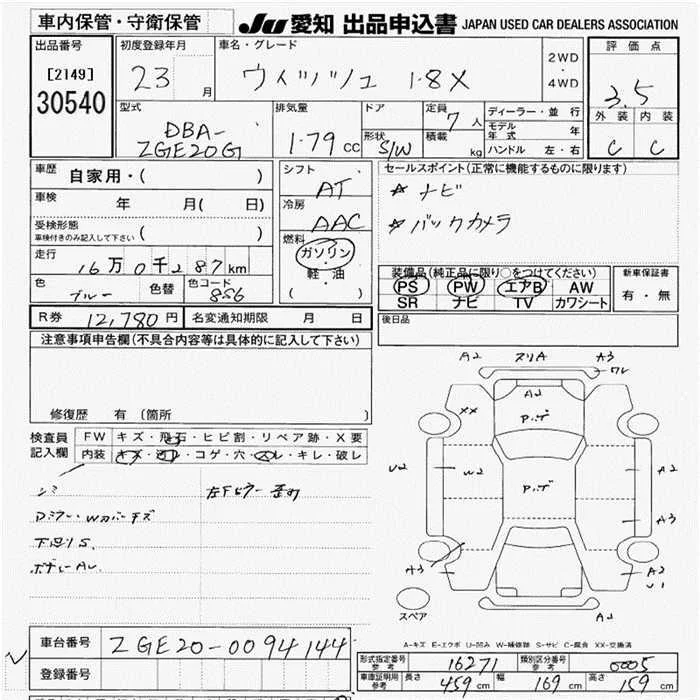 車内保管・守衛保管 JU 愛知 出品申込書 JAPAN USED CAR DEALERS ASSOCIATION
出品番号 初度登録年月 車名・グレード 評価点
[2149] 23 月 ウィッシュ 1.8X 2WD・4WD 3.5
30540 外装 内装
型式 排気量 ドア 定員 7人 ディーラー・並行 C C
DBA- 形状 積載 モデル年式 年
ZGE20G 1.79 CC S/W kg ハンドル 左・右
車歴 自家用・( ) シフト AT セールスポイント(正常に機能するものに限ります)
車検 年 月( 日) 冷房 AAC ☆ナビ
受検形態 ( ) ☆バックカメラ
車検付きのみ記入して下さい
走行 16万0千287km 燃料 ガソリン・軽・油 ( ) 装備品(純正品に限り○をつけてください) 新車保証書
色 ブルー 色替 色コード 8S6 PS PW エアB AW 有・無
SR ナビ TV カワシート
R券 12,780円 名変通知期限 月 日 後日品
注意事項申告欄(不具合内容等は具体的に記入して下さい)
修復歴 有 (箇所 )
検査員 FW キズ・飛石・ヒビ割・リペア跡・X要
記入欄 内装 キズ・ヨゴレ・コゲ・穴・スレ・キレ・破レ
A2 スリA A3
ワレ
XX A2
P.ゲ
U2 W2 P.ゲ A2
A3
A3 A2
U1
スペア A2
シミ 左Fピラー歪め
Dミラー・Wカバーキズ
下回りS.
ボデーAU.
A-キズ E-エクボ U-凹み W-補修跡 S-サビ C-腐食 XX-交換済
車台番号 ZGE20-0094144
登録番号
形式指定番号 参考 16271 類別区分番号 参考 0005
車庫証明用 参考 長さ 459cm 幅 169cm 高さ 159cm